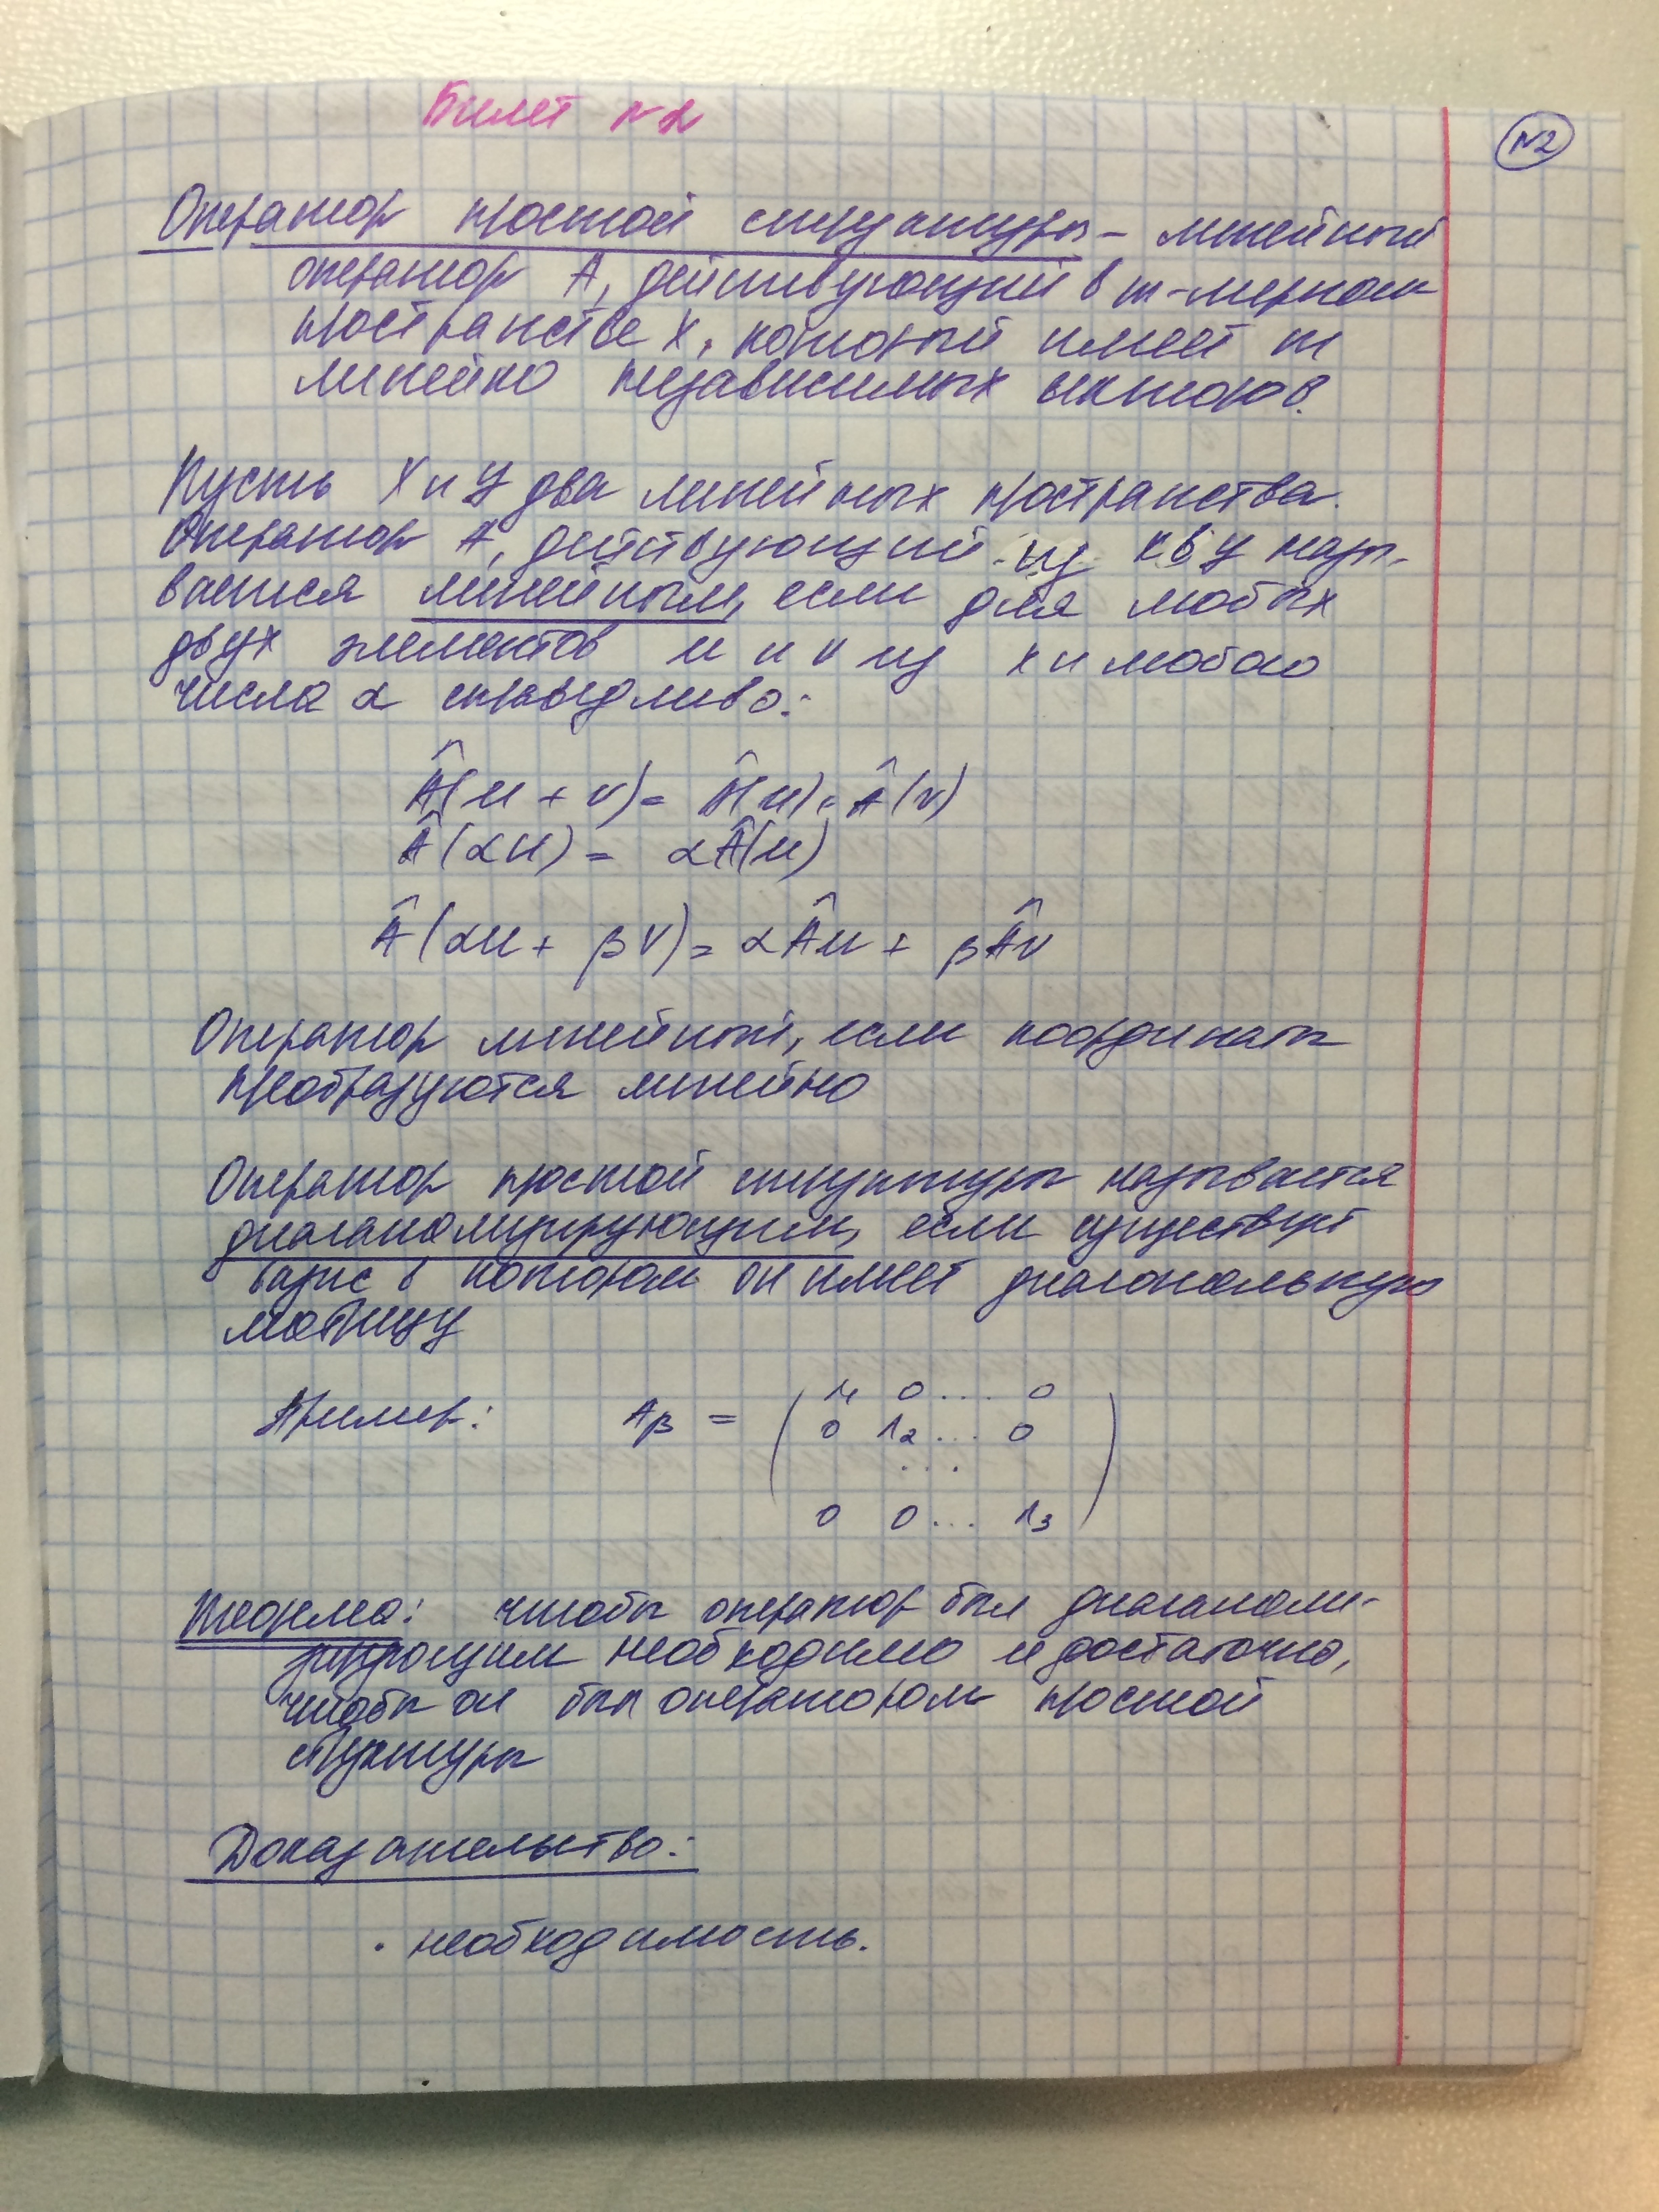 Билет №2
№2
Оператор простой структуры – линейный
оператор А, действующий в m-мерном
пространстве X, который имеет m
линейно независимых векторов.
Пусть X и У два линейных пространства.
Оператор А, действующий из X в У назы-
вается линейным, если для любых
двух элементов u и v из X и любого
числа α справедливо:
Â(u + v) = Â(u) + Â(v)
Â(αu) = αÂ(u)
Â(αu + βv) = αÂu + βÂv
Оператор линейный, если координаты
преобразуются линейно
Оператор простой структуры называется
диаганализирующим, если существует
базис в котором он имеет диагональную
матрицу
Пример: Aβ = ( λ1 0 ... 0
0 λ2 ... 0
...
0 0 ... λ3 )
Теорема: чтобы оператор был диаганали-
зирующим необходимо и достаточно,
чтобы он был оператором простой
структуры
Доказательство:
· необходимость.